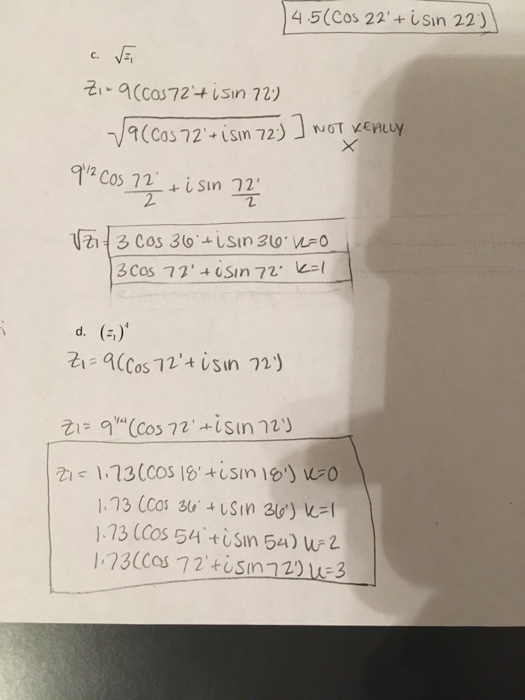 4.5(Cos 22° + i sin 22°)
c. √z₁
z₁ = 9(cos 72° + i sin 72°)
√9(cos 72° + i sin 72°) ] NOT REALLY
X
9^1/2 Cos 72°/2 + i sin 72°/2
√z₁ = 3 Cos 36° + i sin 36° k=0
3 Cos 72° + i sin 72° k=1
d. (z₁)⁴
z₁ = 9(Cos 72° + i sin 72°)
z₁ = 9^1/4 (Cos 72° + i sin 72°)
z₁ = 1.73(cos 18° + i sin 18°) k=0
1.73 (Cos 36° + i sin 36°) k=1
1.73 (Cos 54° + i sin 54) k=2
1.73(Cos 72° + i sin 72°) k=3